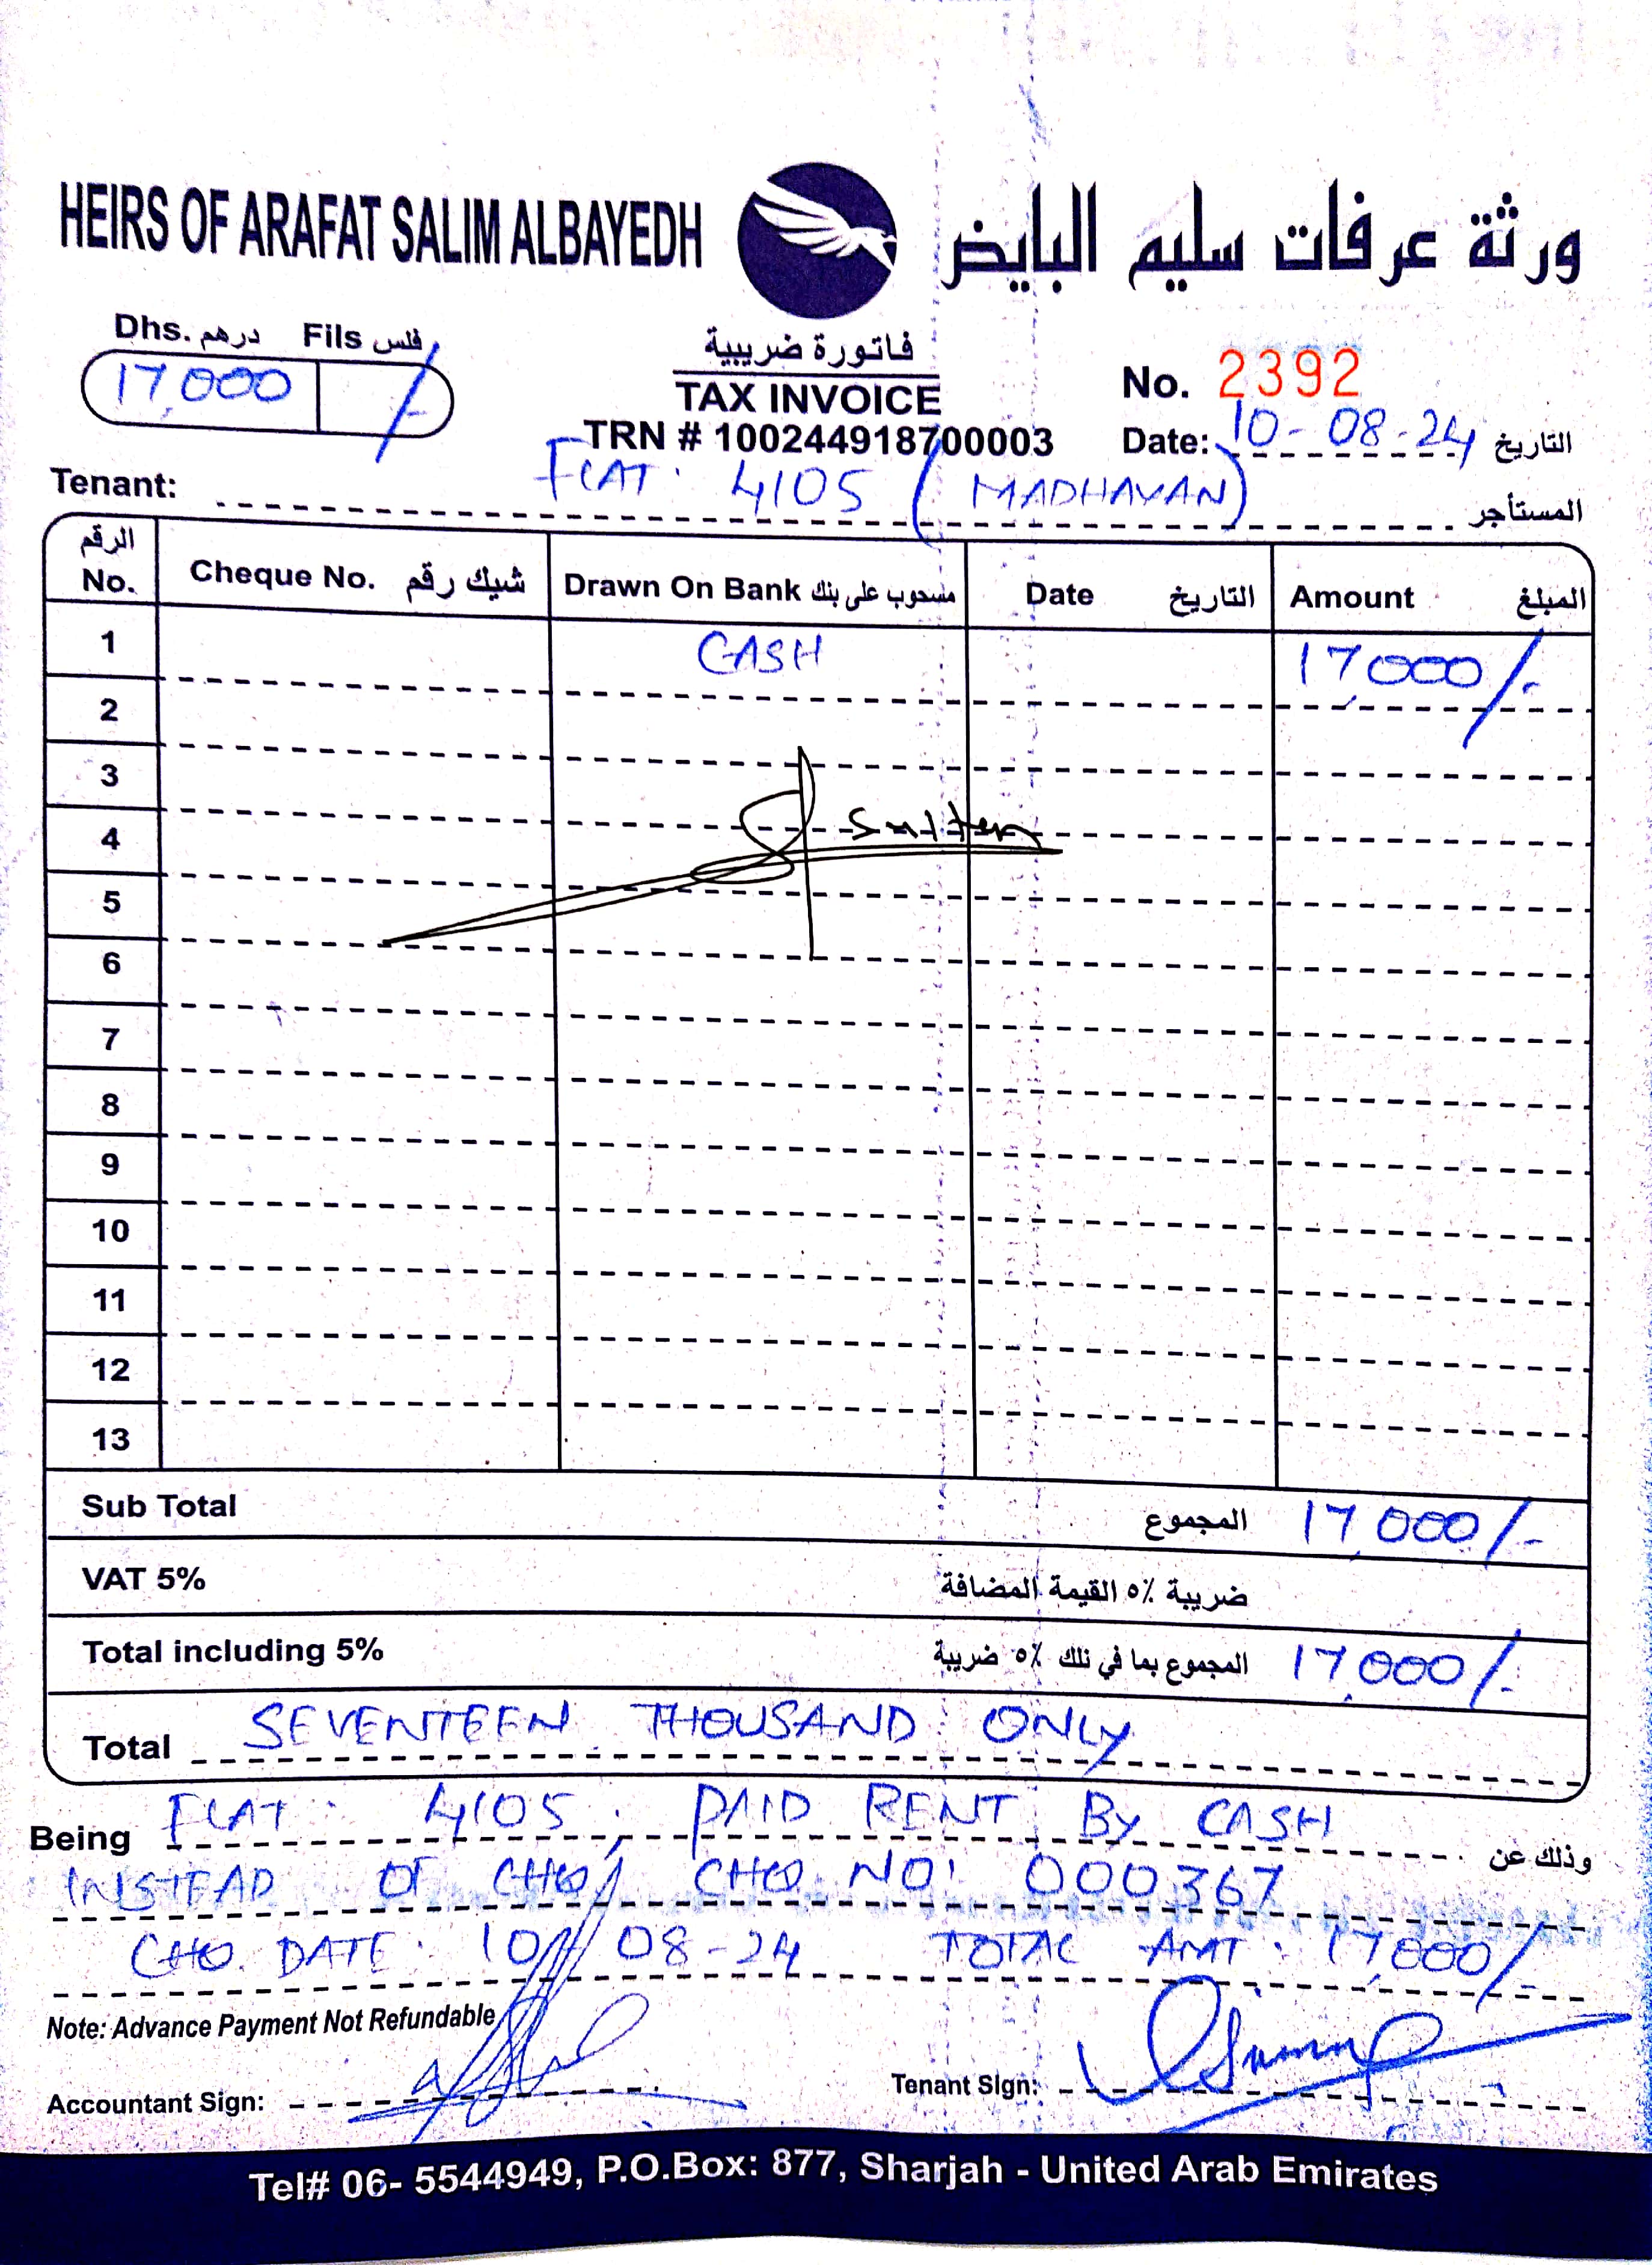 HEIRS OF ARAFAT SALIM ALBAYEDH ورثة عرفات سليم البايض
Dhs. درهم Fils فلس
17,000 /-
فاتورة ضريبية
TAX INVOICE
TRN # 100244918700003
No. 2392
Date: 10-08-24 التاريخ
Tenant: FLAT: 4105 (MADHAVAN) المستأجر
الرقم No. Cheque No. شيك رقم Drawn On Bank مسحوب على بنك Date التاريخ Amount المبلغ
1 CASH 17,000/-
2
3
4
5
6
7
8
9
10
11
12
13
Sub Total المجموع 17,000/-
VAT 5% ضريبة ٥٪ القيمة المضافة
Total including 5% المجموع بما في ذلك ٥٪ ضريبة 17,000/-
Total SEVENTEEN THOUSAND ONLY
Being FLAT: 4105, PAID RENT By CASH وذلك عن
INSTEAD OF CHQ, CHQ NO: 000367
CHQ. DATE: 10/08-24 TOTAL AMT: 17,000/-
Note: Advance Payment Not Refundable
Accountant Sign: Tenant Sign:
Tel# 06- 5544949, P.O.Box: 877, Sharjah - United Arab Emirates